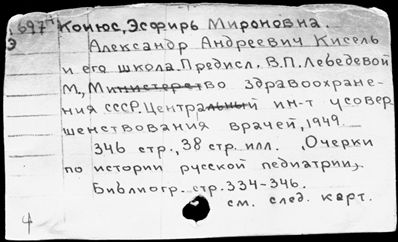 ,697" Конюс, Эсфирь Мироновна.
Э
Александр Андреевич Кисель
и его школа. Предисл. В.П. Лебедевой
М., Министерство здравоохране-
ния СССР. Центральный ин-т усовер
шенствования врачей, 1949.
346 стр., 38 стр. илл. ,Очерки
по истории русской педиатрии,.
Библиогр. стр. 334-346.
см. след. карт.
4